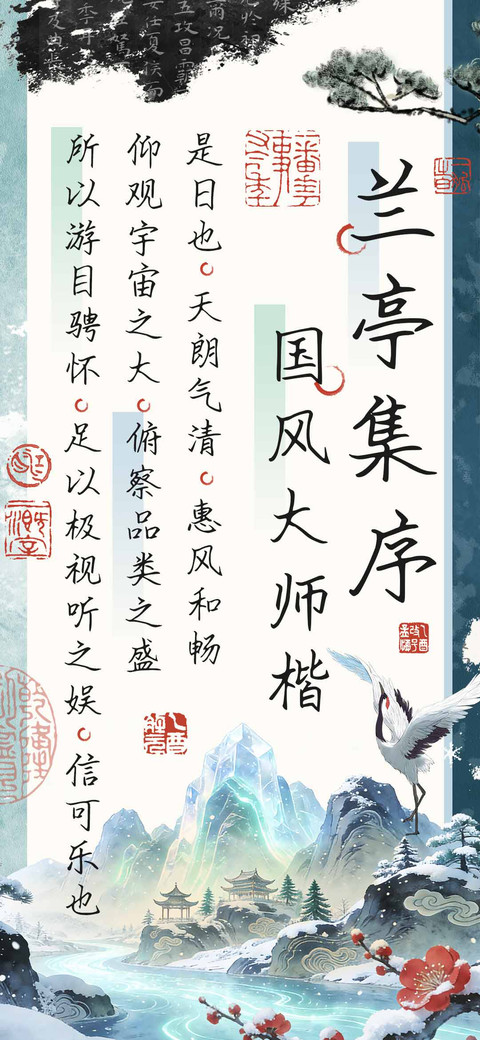 兰亭集序
国风大师楷
是日也。天朗气清。惠风和畅
仰观宇宙之大。俯察品类之盛
所以游目骋怀。足以极视听之娱。信可乐也